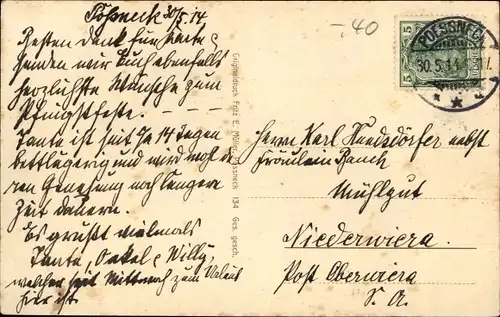 Pößneck 30/5.14.
Besten Dank für Karte,
senden wir Euch ebenfalls
herzlichste Wünsche zum
Pfingstfeste.
Tante ist seit ca 14 Tagen
bettlägerig und wird noch
ren Genesung noch längere
Zeit dauern.
Es grüßt vielmals
Tante, Onkel, Willy,
welcher seit Mittwoch zum
hier ist.
-.40
POESSNECK
30.5.14
5
5
Originaldruck Fritz E. Müller, Pössneck 134 Ges. gesch.
Herrn Karl Hundsdörfer nebst
Fräulein Rauch
Mühlgut
Niederwiera.
Post Oberwiera
S. A.